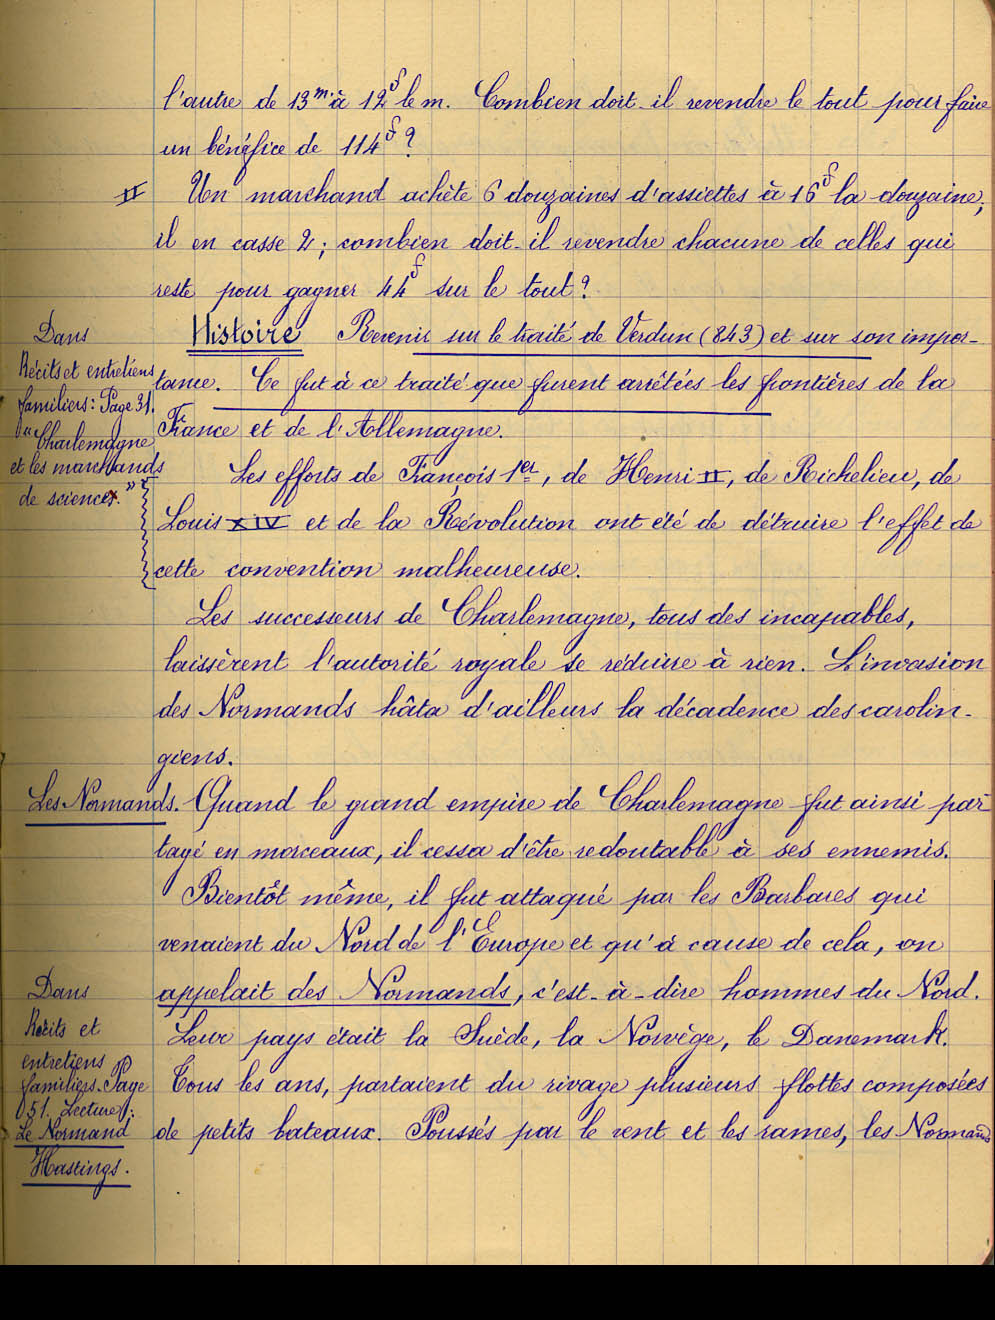 l'autre de 13m à 12f le m. Combien doit-il revendre le tout pour faire
un bénéfice de 114f ?
II Un marchand achète 6 douzaines d'assiettes à 16f la douzaine,
il en casse 2 ; combien doit-il revendre chacune de celles qui
reste pour gagner 44f sur le tout ?
Histoire Revenir sur le traité de Verdun (843) et sur son impor-
tance. Ce fut à ce traité que furent arrêtées les frontières de la
France et de l'Allemagne.
Dans
Récits et entretiens
familiers : Page 31.
"Charlemagne
et les marchands
de sciences."
Les efforts de François 1er, de Henri II, de Richelieu, de
Louis XIV et de la Révolution ont été de détruire l'effet de
cette convention malheureuse.
Les successeurs de Charlemagne, tous des incapables,
laissèrent l'autorité royale se réduire à rien. L'invasion
des Normands hâta d'ailleurs la décadence des carolin-
giens.
Les Normands. Quand le grand empire de Charlemagne fut ainsi par-
tagé en morceaux, il cessa d'être redoutable à ses ennemis.
Bientôt même, il fut attaqué par les Barbares qui
venaient du Nord de l'Europe et qu'à cause de cela, on
appelait des Normands, c'est-à-dire hommes du Nord.
Leur pays était la Suède, la Norvège, le Danemark.
Tous les ans, partaient du rivage plusieurs flottes composées
de petits bateaux. Poussés par le vent et les rames, les Normands
Dans
Récits et
entretiens
familiers. Page
51. Lecture :
Le Normand
Hastings.